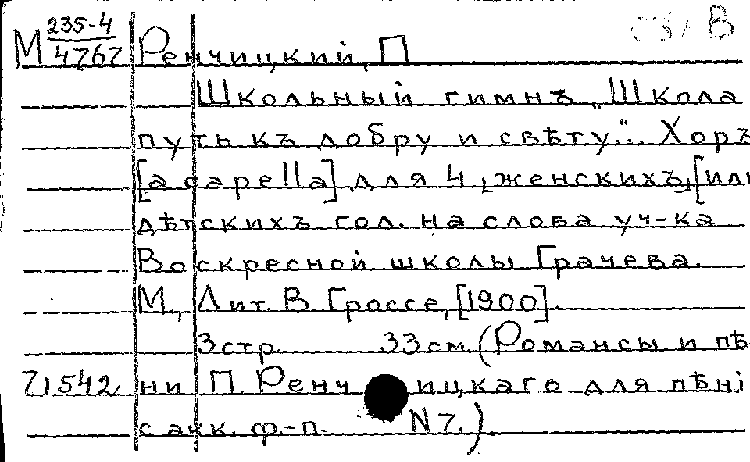 М 235-4/4767 Ренчицкий, П
Школьный гимнъ „Школа
путь къ добру и свѣту“. Хоръ
[a capella] для 4 женскихъ, [или
дѣтскихъ гол. на слова уч-ка
Воскресной школы Грачева.
М., Лит. В. Гроссе, [1900].
3 стр. 33 см. (Романсы и пѣ
71542 ни П. Ренчицкаго для пѣні
с акк. ф.-п. N 7.).